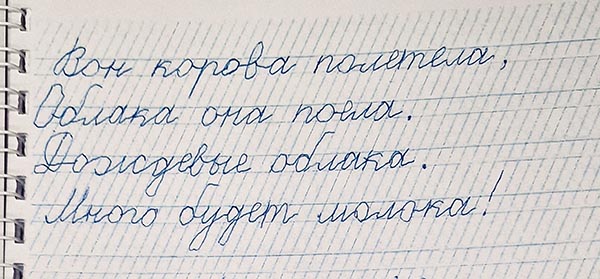 Вон корова полетела,
Облака она поела.
Дождевые облака.
Много будет молока!